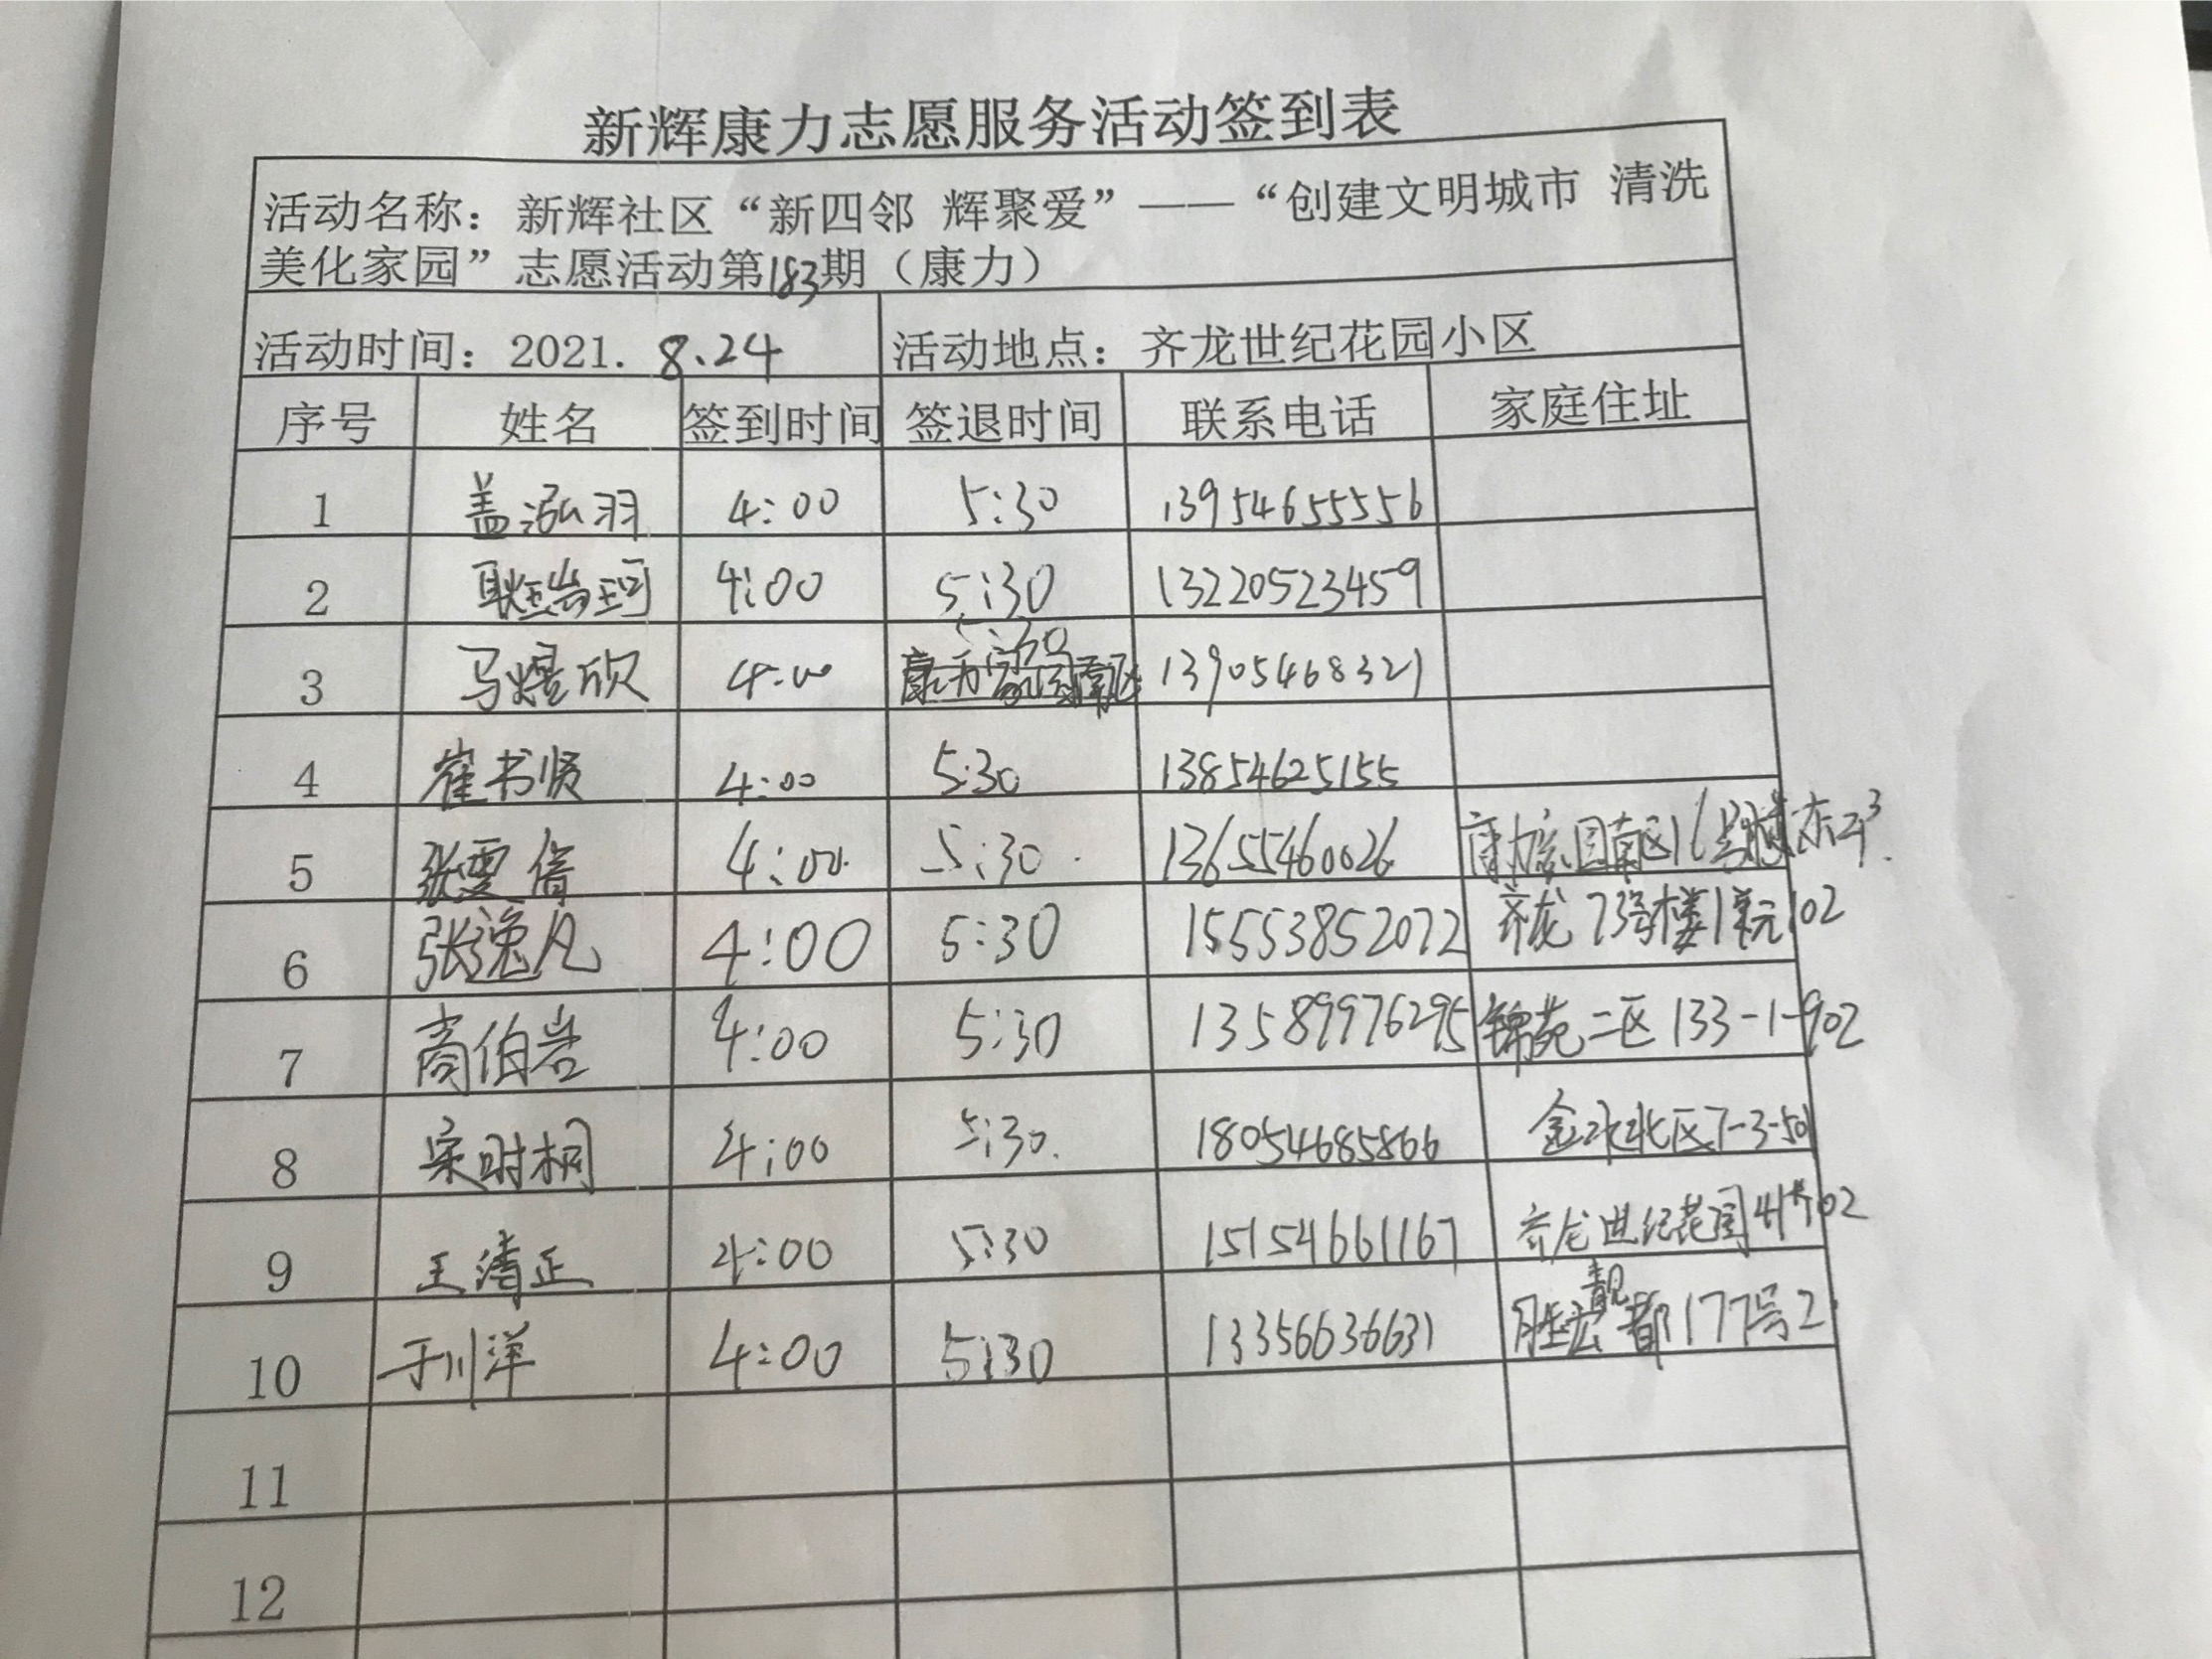 新辉康力志愿服务活动签到表
活动名称：新辉社区“新四邻 辉聚爱”——“创建文明城市 清洗
美化家园”志愿活动第183期（康力）
活动时间：2021. 8.24 活动地点：齐龙世纪花园小区
序号 姓名 签到时间 签退时间 联系电话 家庭住址
1 盖泓羽 4:00 5:30 13954655556
2 耿 4:00 5:30 13220523459
3 马煜欣 4:00 5:30 13905468321
4 崔书贤 4:00 5:30 13854625155
5 张雯倩 4:00 5:30 13655460026 康力家园南区16号楼
6 张逸凡 4:00 5:30 15553852072 齐龙73号楼1单元102
7 高伯岩 4:00 5:30 13589976295 锦苑二区133-1-902
8 宋时桐 4:00 5:30 18054685866 金水北区7-3-501
9 王清正 4:00 5:30 15154661167 齐龙世纪花园41#102
10 于川洋 4:00 5:30 13356636631 胜宏靓都177号2
11
12